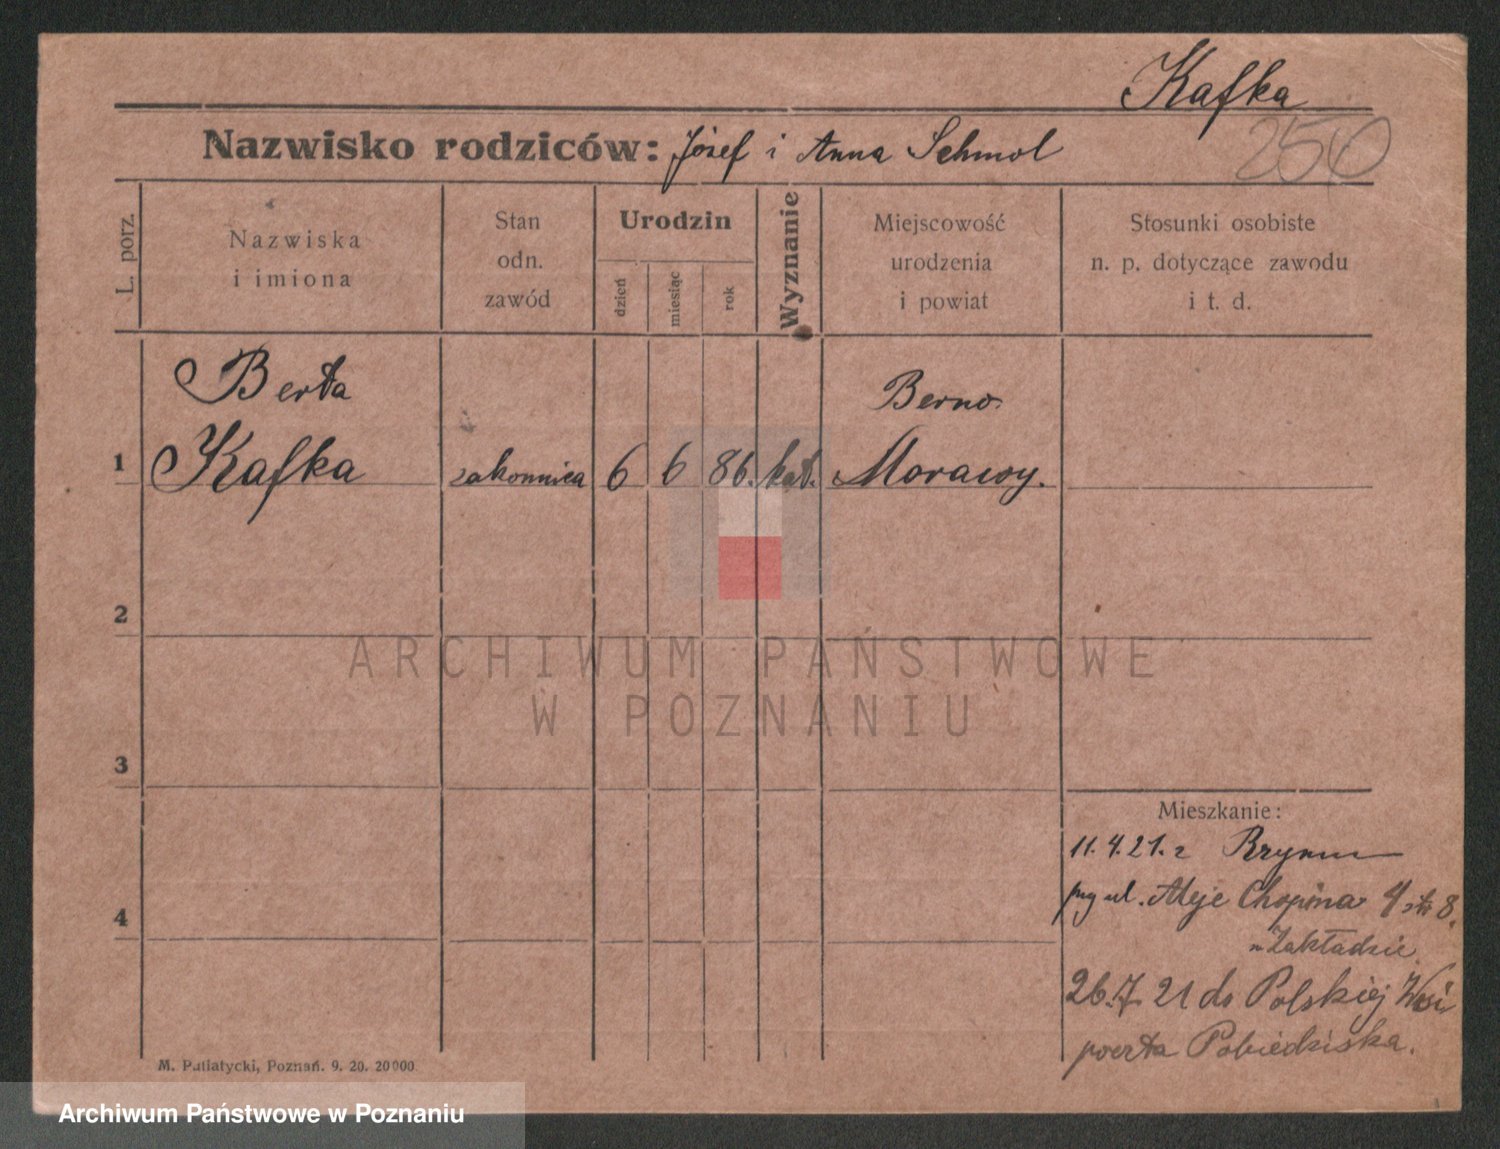 Kafka
250
Nazwisko rodziców: Józef i Anna Schmol
L. porz.
Nazwiska
i imiona
Stan
odn.
zawód
Urodzin
dzień
miesiąc
rok
Wyznanie
Miejscowość
urodzenia
i powiat
Stosunki osobiste
n. p. dotyczące zawodu
i t. d.
Berta
Berno
1 Kafka zakonnica 6 6 86. kat. Morawy.
2
ARCHIWUM PAŃSTWOWE
W POZNANIU
3
Mieszkanie:
11.4.21. z Rzymu
ul. Aleje Chopina 4 8.
w Zakładzie
4
26.7 21 do Polskiej Wsi
poczta Pobiedziska.
M. Putiatycki, Poznań. 9. 20. 20000
Archiwum Państwowe w Poznaniu